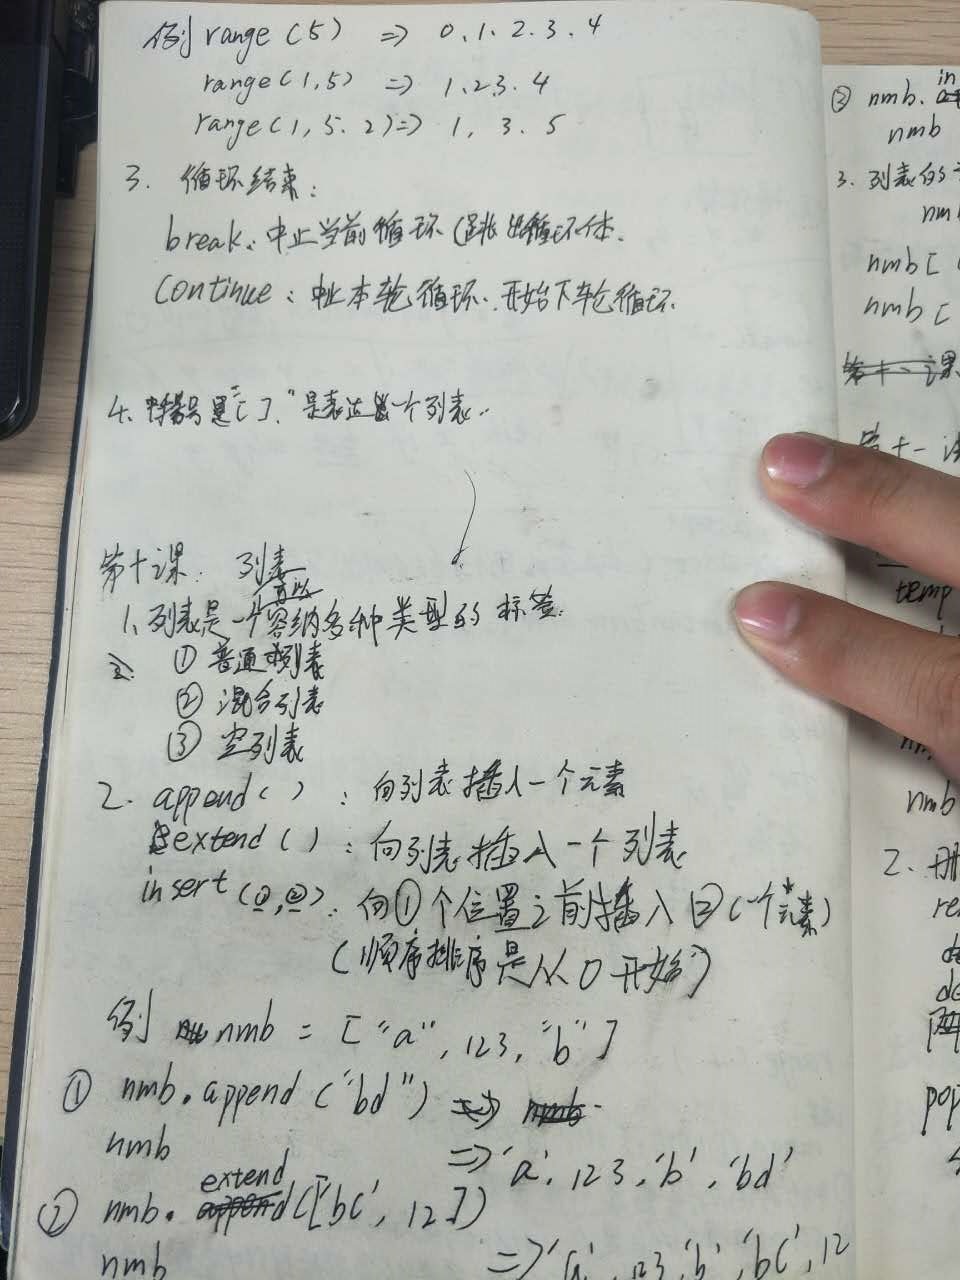 例 range(5) => 0、1、2、3、4
range(1,5) => 1、2、3、4
range(1,5、2)=> 1, 3、5
3. 循环结束:
break: 中止当前循环(跳出循环体.
continue: 中止本轮循环、开始下轮循环
4. 中括号是"[ ]、"是表达一个列表..
第十课. 列表
1、列表是一个可以容纳多种类型的标签.
2、 ① 普通列表
② 混合列表
③ 空列表
2. append() : 向列表插入一个元素
extend() : 向列表插入一个列表
insert(①,②). 向①个位置之前插入②(一个元素)
(顺序排序是从0开始)
例 nmb = ["a", 123, "b"]
① nmb.append("bd")
nmb => 'a', 123, 'b', 'bd'
② nmb.extend(['bc', 12])
nmb => 'a', 123, 'b', 'bc', 12
② nmb. in
nmb
3. 列表的
nmb
nmb[
nmb[
第十一
temp
nmb
2.
pop